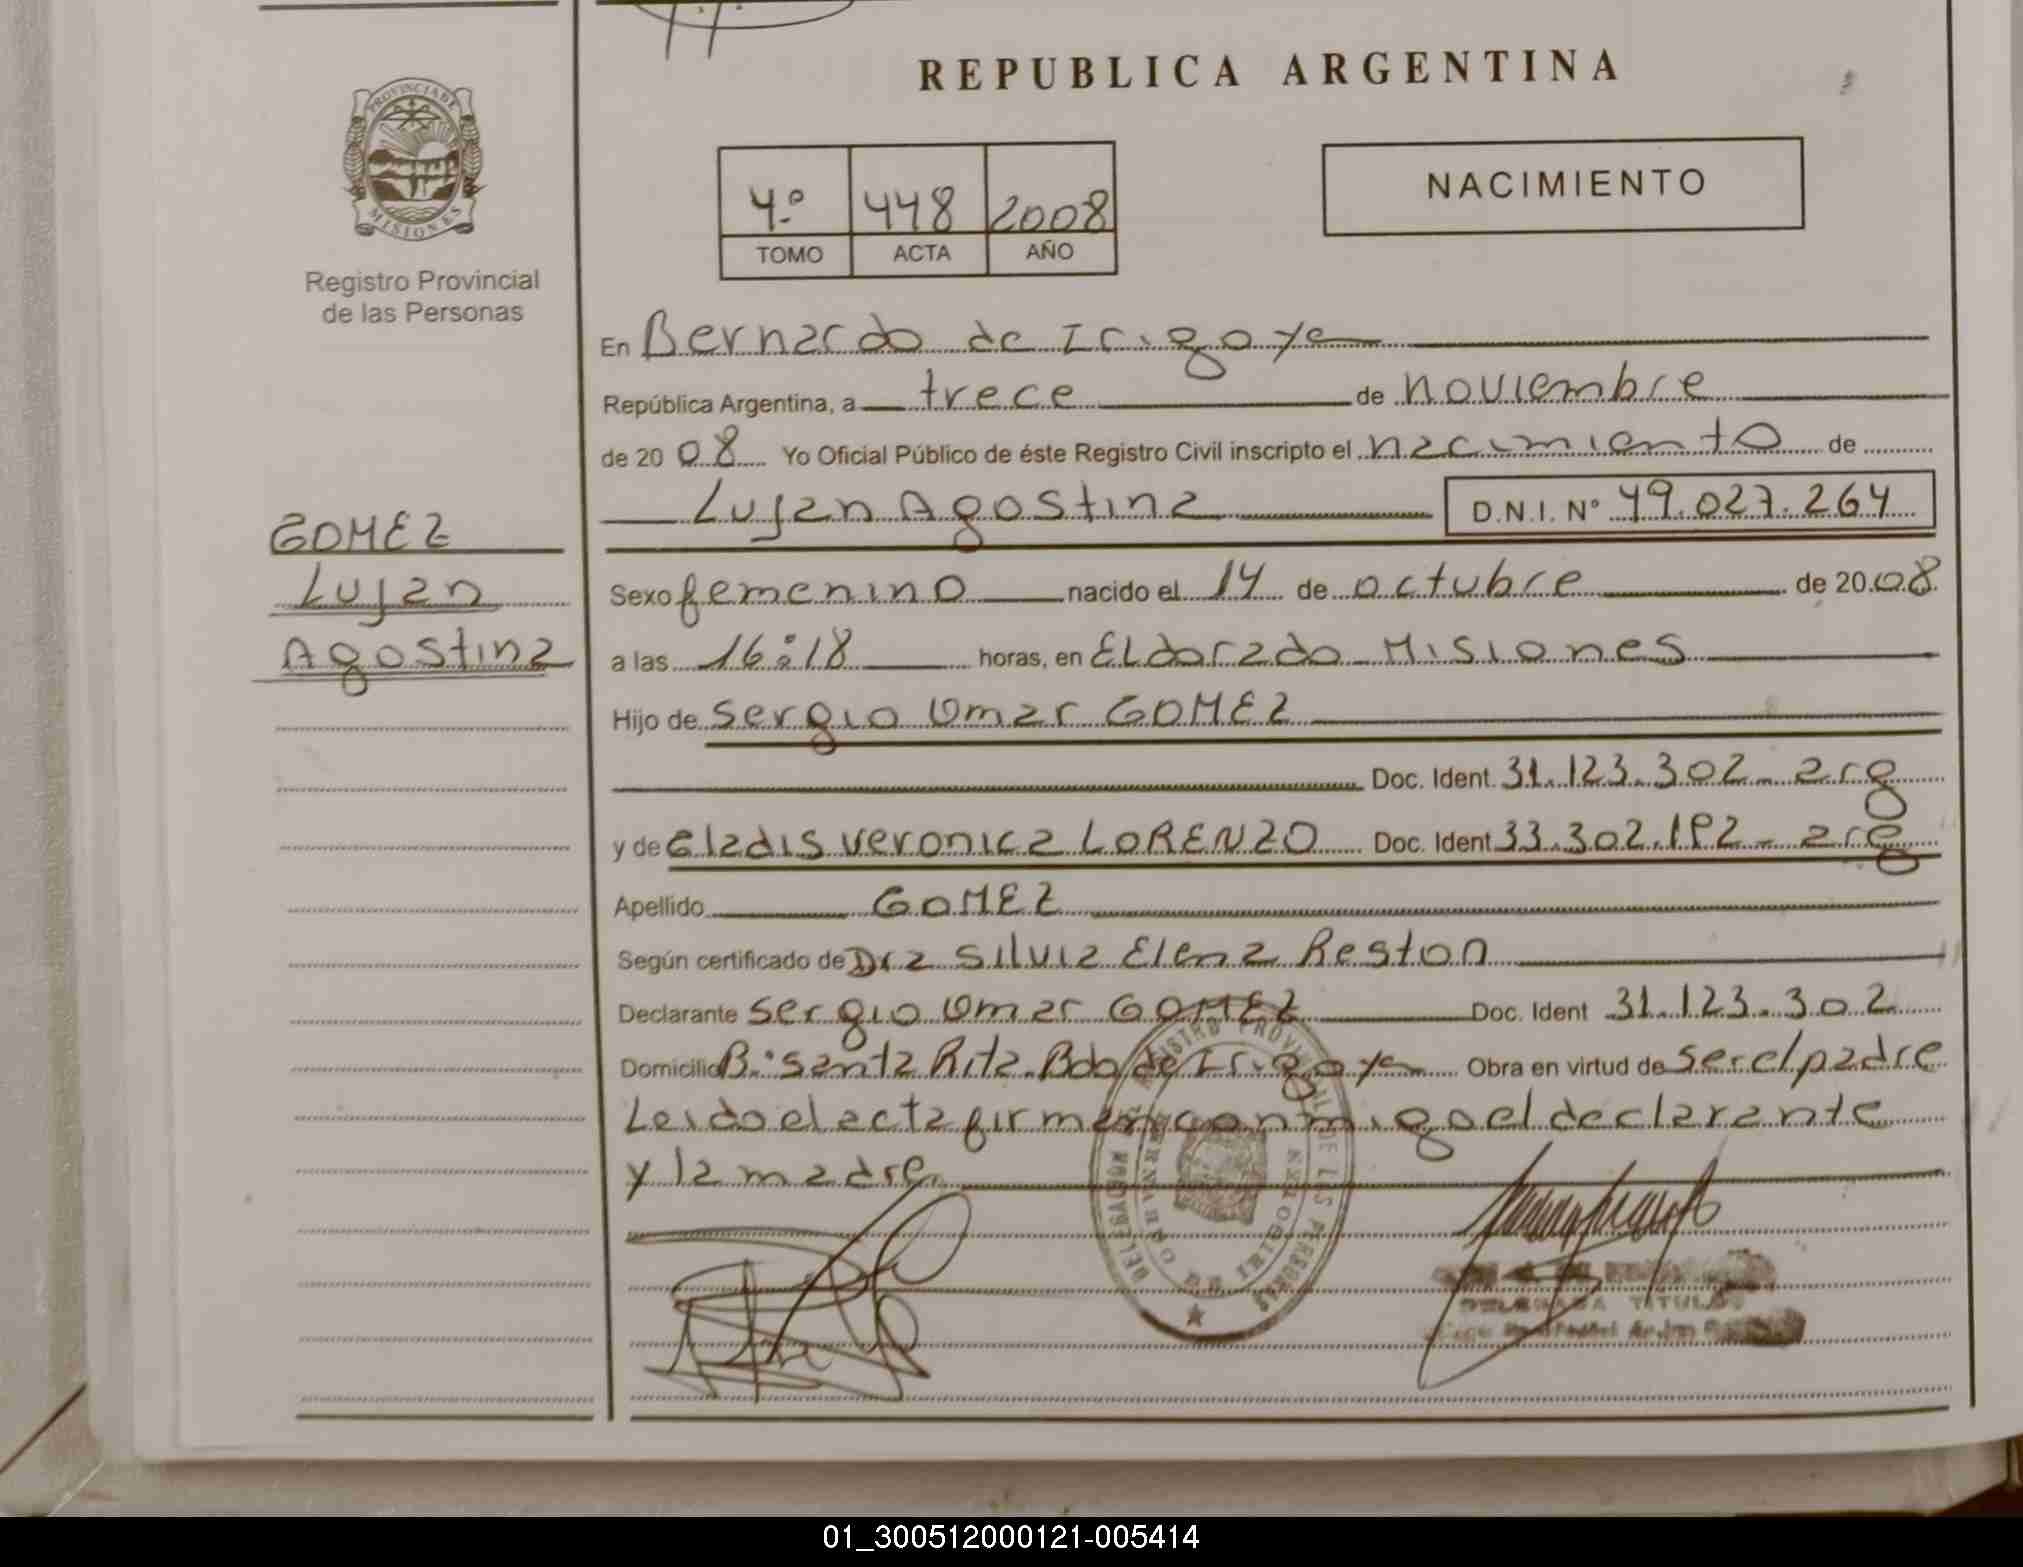 REPUBLICA ARGENTINA
PROVINCIA DE
MISIONES
Registro Provincial
de las Personas
4º 448 2008
TOMO ACTA AÑO
NACIMIENTO
En Bernardo de Irigoye
República Argentina, a trece de noviembre
de 20 08 Yo Oficial Público de éste Registro Civil inscripto el nacimiento de
Lujan Agostina D.N.I. Nº 49.027.264
GOMEZ
Lujan
Agostina
Sexo femenino nacido el 14 de octubre de 20 08
a las 16:18 horas, en Eldorado Misiones
Hijo de Sergio Omar GOMEZ
Doc. Ident. 31.123.302 - arg
y de Gladis Veronica LORENZO Doc. Ident 33.302.192 - arg
Apellido GOMEZ
Según certificado de Dra Silvia Elena Reston
Declarante Sergio Omar GOMEZ Doc. Ident 31.123.302
Domicilio B: Santa Rita. Bdo de Irigoye Obra en virtud de ser el padre
Leido el acta firman conmigo el declarante
y la madre.
REGISTRO PROVINCIAL DE LAS PERSONAS
DELEGACION
BERNARDO DE IRIGOYEN
DELEGADA TITULAR
01_300512000121-005414